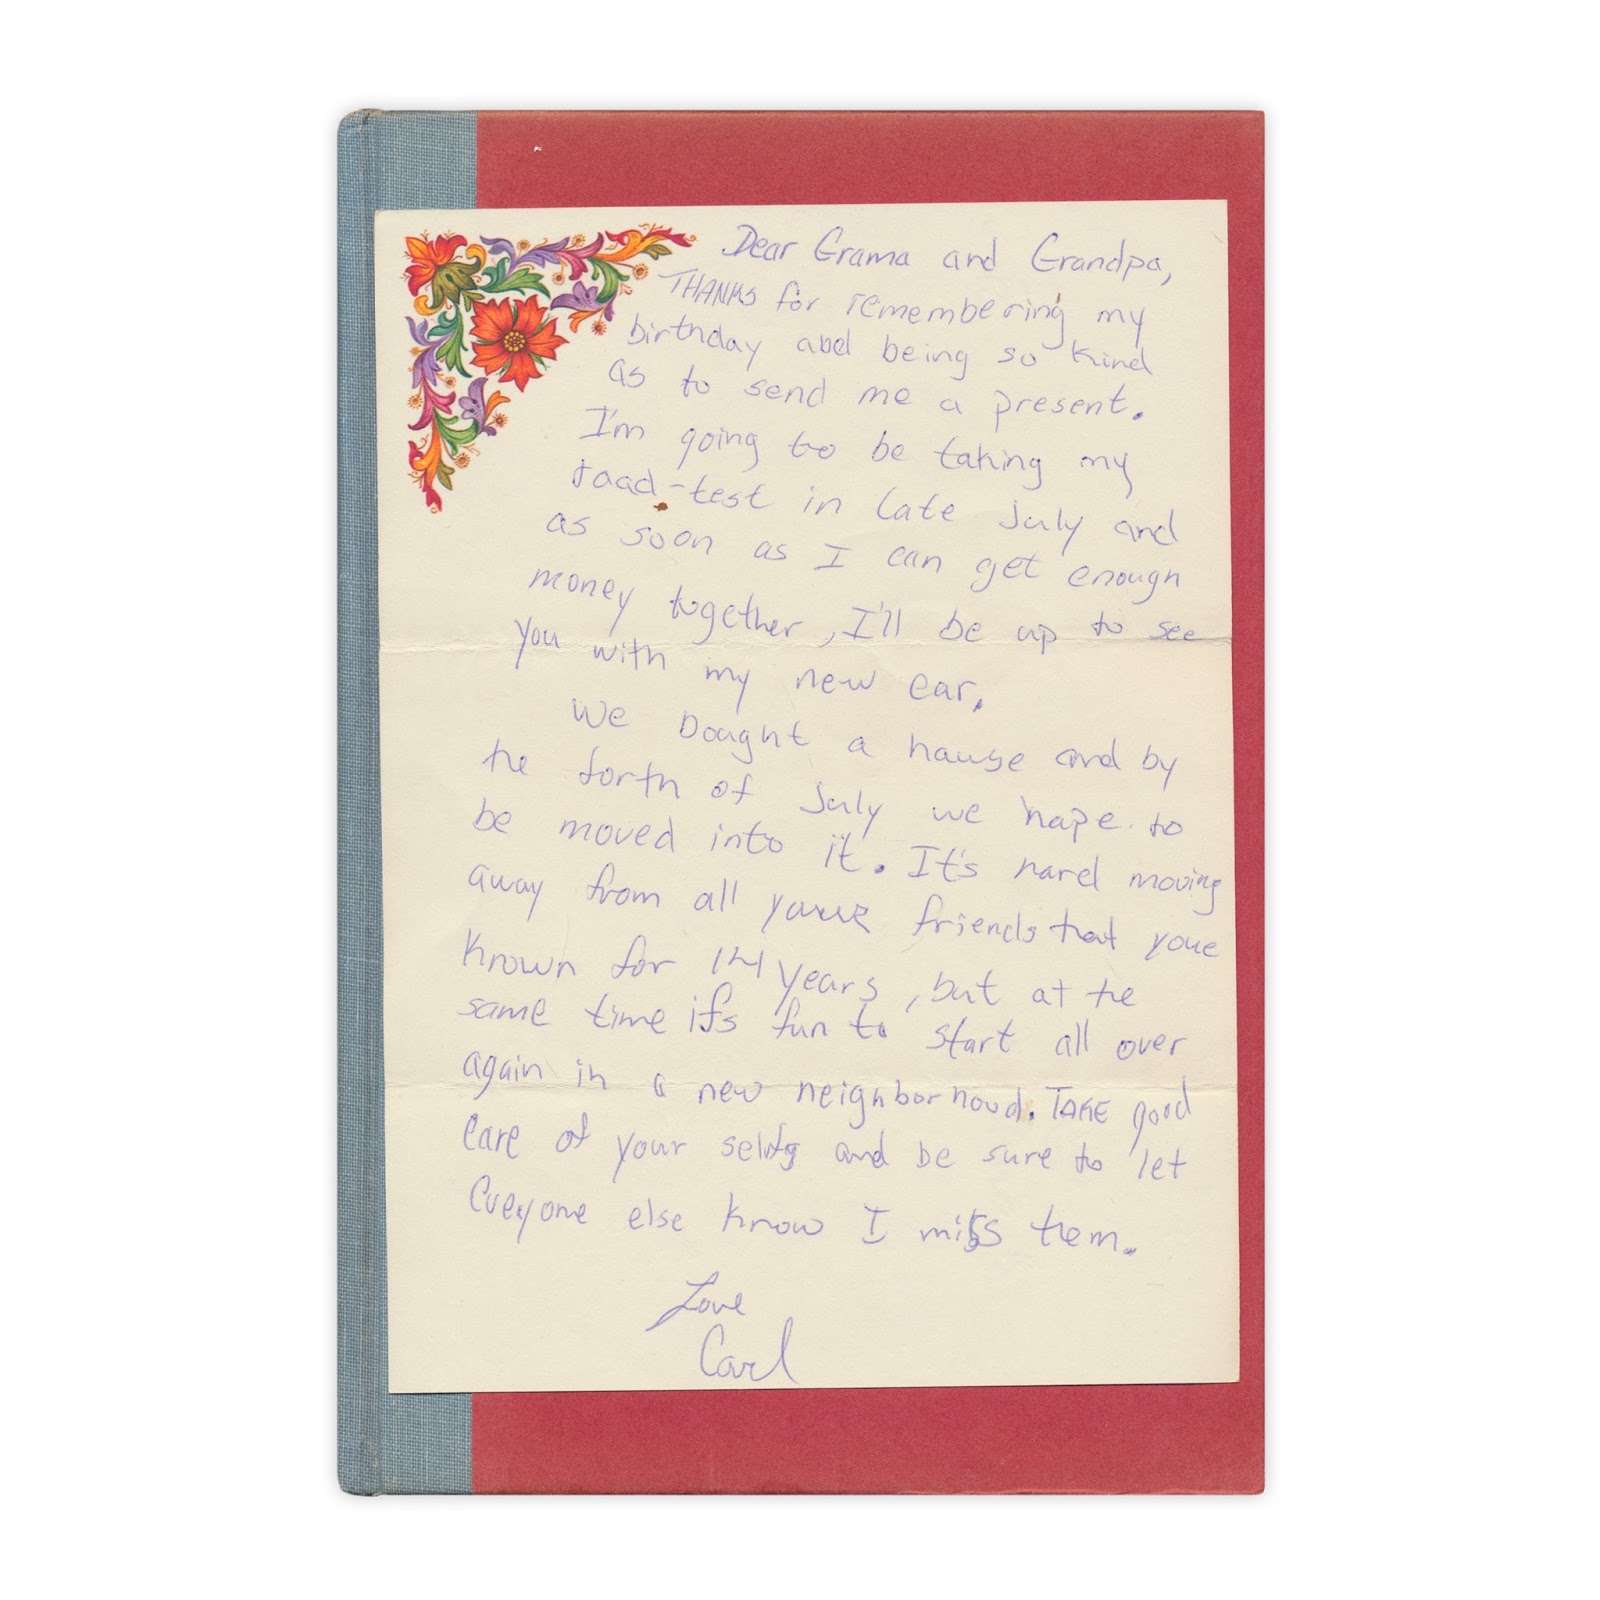 Dear Grama and Grandpa,
THANKS for remembering my
birthday abd being so kind
as to send me a present.
I'm going to be taking my
road-test in late July and
as soon as I can get enough
money together, I'll be up to see
you with my new car.
We bought a house and by
the forth of July we hope to
be moved into it. It's hard moving
away from all your friends that youve
known for 14 years, but at the
same time it's fun to start all over
again in a new neighborhood. TAKE good
care of your selfs and be sure to let
Eveyone else know I miss them.
Love
Carl